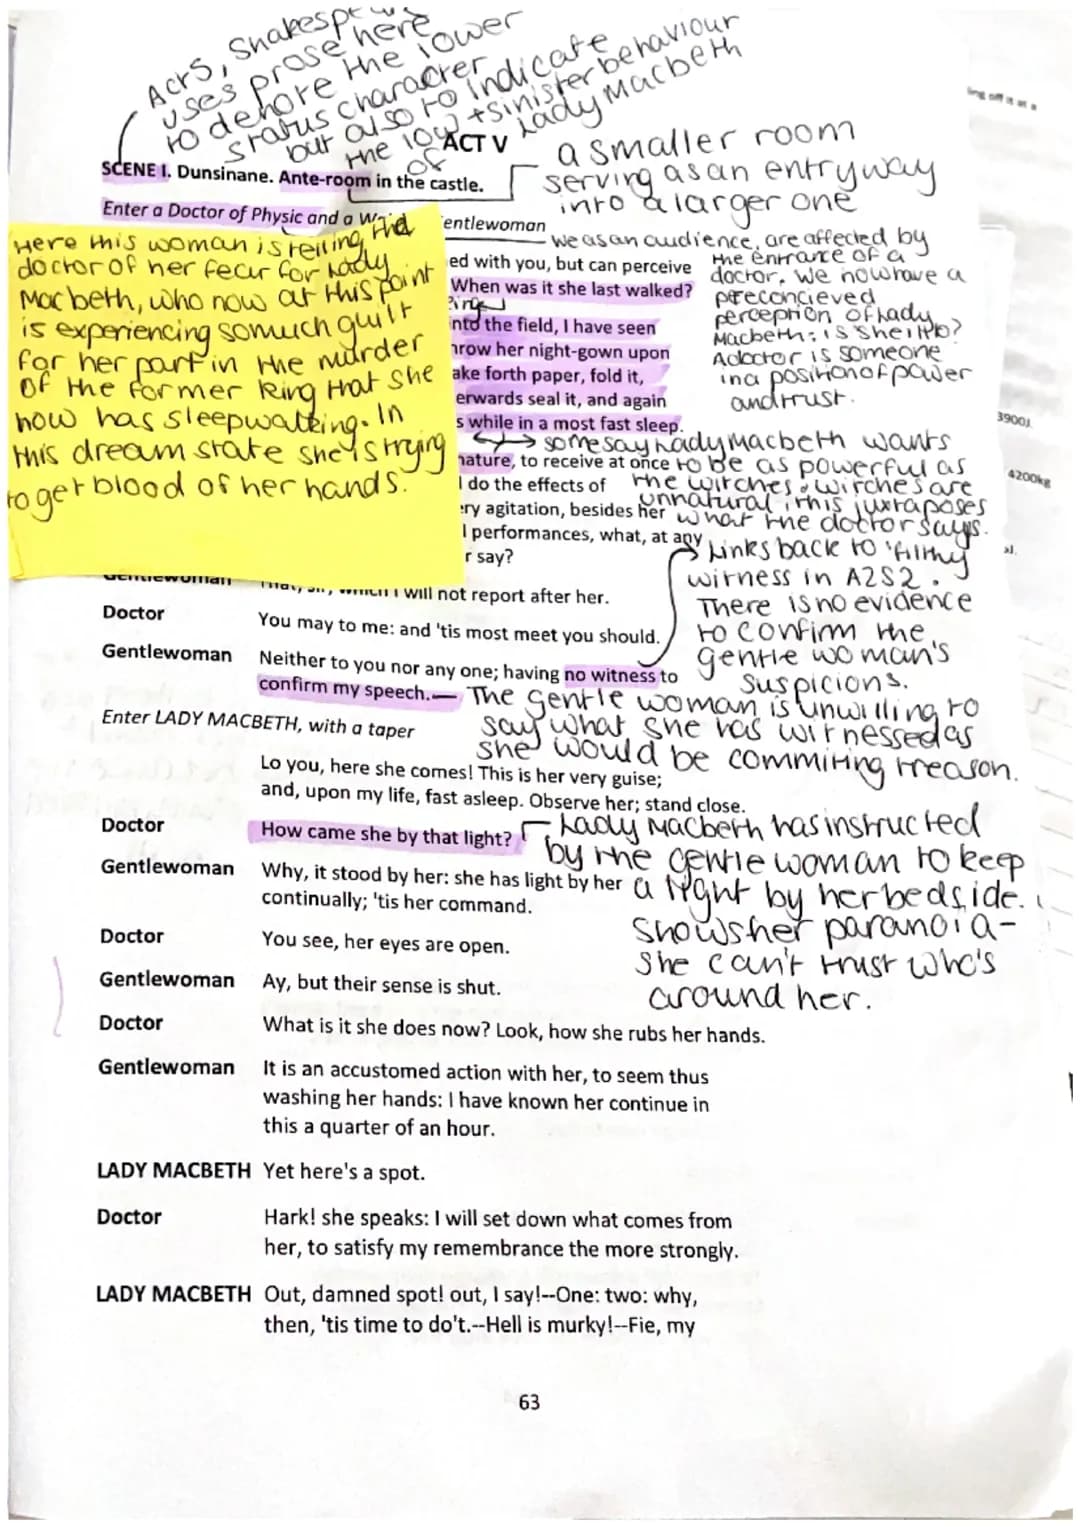 Acts, Shakespe
uses prose here
to denote the lower
status character
but also to indicate
the low + sinister behaviour
of Lady Macbeth
ACT V
SCENE I. Dunsinane. Ante-room in the castle.
a smaller room
serving as an entryway
into a larger one
Enter a Doctor of Physic and a W entlewoman
Here this woman is telling the
doctor of her fear for Lady
Macbeth, who now at this point
is experiencing so much guilt
for her part in the murder
of the former king that she
now has sleepwalking. In
this dream state she is trying
to get blood of her hands.
We as an audience, are affected by
the entrance of a
doctor. We now have a
preconcieved
perception of Lady
Macbeth: is she ill?
A doctor is someone
in a position of power
and trust.
ed with you, but can perceive
When was it she last walked?
nto the field, I have seen
hrow her night-gown upon
ake forth paper, fold it,
erwards seal it, and again
s while in a most fast sleep.
some say Lady Macbeth wants
to be as powerful as
the witches. witches are
unnatural, this juxtaposes
what the doctor says.
nature, to receive at once
I do the effects of
ery agitation, besides her
l performances, what, at any
r say?
Links back to 'filthy
witness in A2S2.
There is no evidence
to confirm the
gentle woman's
suspicions.
Gentlewoman That, sir, which I will not report after her.
Doctor You may to me: and 'tis most meet you should.
Gentlewoman Neither to you nor any one; having no witness to
confirm my speech.
The gentle woman is unwilling to
say what she has witnessed as
she would be commiting treason.
Enter LADY MACBETH, with a taper
Lo you, here she comes! This is her very guise;
and, upon my life, fast asleep. Observe her; stand close.
Doctor How came she by that light?
Lady Macbeth has instructed
by the gentle woman to keep
a light by her bedside.
Shows her paranoia-
she can't trust who's
around her.
Gentlewoman Why, it stood by her: she has light by her
continually; 'tis her command.
Doctor You see, her eyes are open.
Gentlewoman Ay, but their sense is shut.
Doctor What is it she does now? Look, how she rubs her hands.
Gentlewoman It is an accustomed action with her, to seem thus
washing her hands: I have known her continue in
this a quarter of an hour.
LADY MACBETH Yet here's a spot.
Doctor Hark! she speaks: I will set down what comes from
her, to satisfy my remembrance the more strongly.
LADY MACBETH Out, damned spot! out, I say!--One: two: why,
then, 'tis time to do't.--Hell is murky!--Fie, my
63
ing off is at a
3900J
4200kg